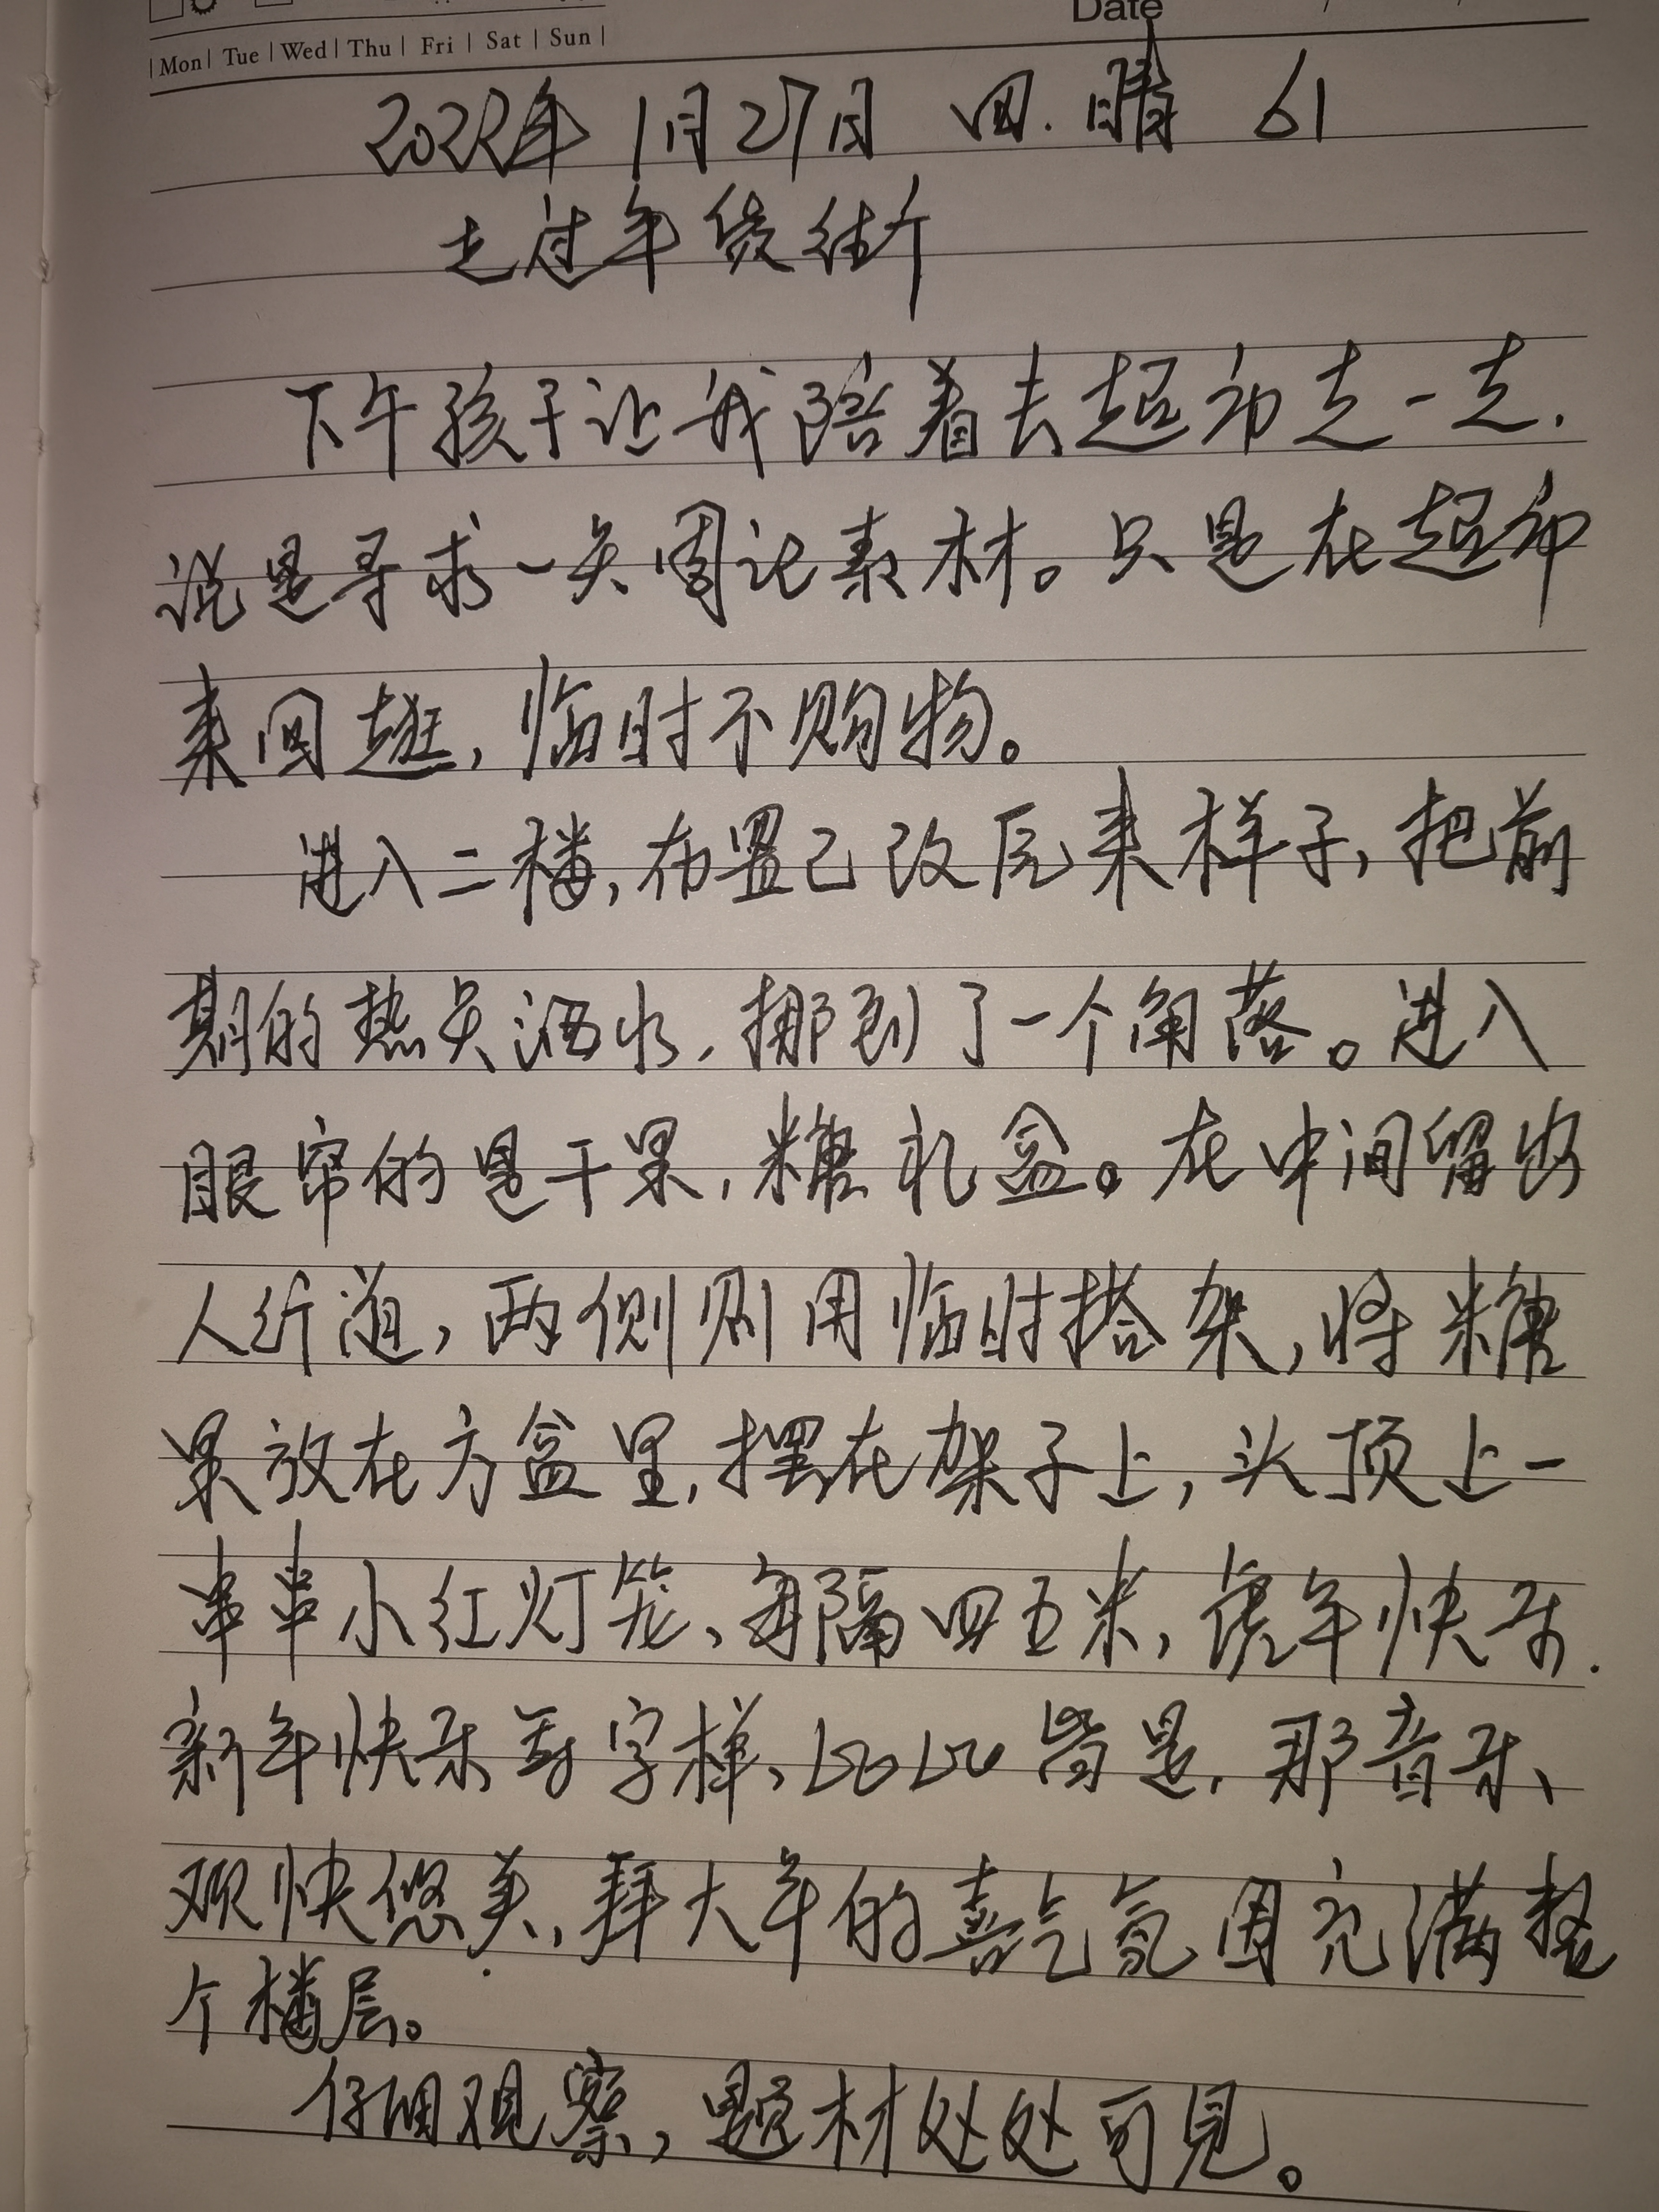 Date
Mon Tue Wed Thu Fri Sat Sun
2022年1月27日 四.晴 61
走过年货街
下午孩子让我陪着去超市走一走.
说是寻求一点周记素材。只是在超市
来回逛,临时不购物。
进入二楼,布置已改原来样子,把前
期的热点酒水,挪到了一个角落。进入
眼帘的是干果,糖礼盒。在中间留出
人行道,两侧则用临时搭架,将糖
果放在方盒里,摆在架子上,头顶上一
串串小红灯笼、每隔四五米,虎年快乐.
新年快乐等字样、比比皆是,那音乐、
欢快悠美,拜大年的喜气氛围充满整
个楼层。
仔细观察,题材处处可见。